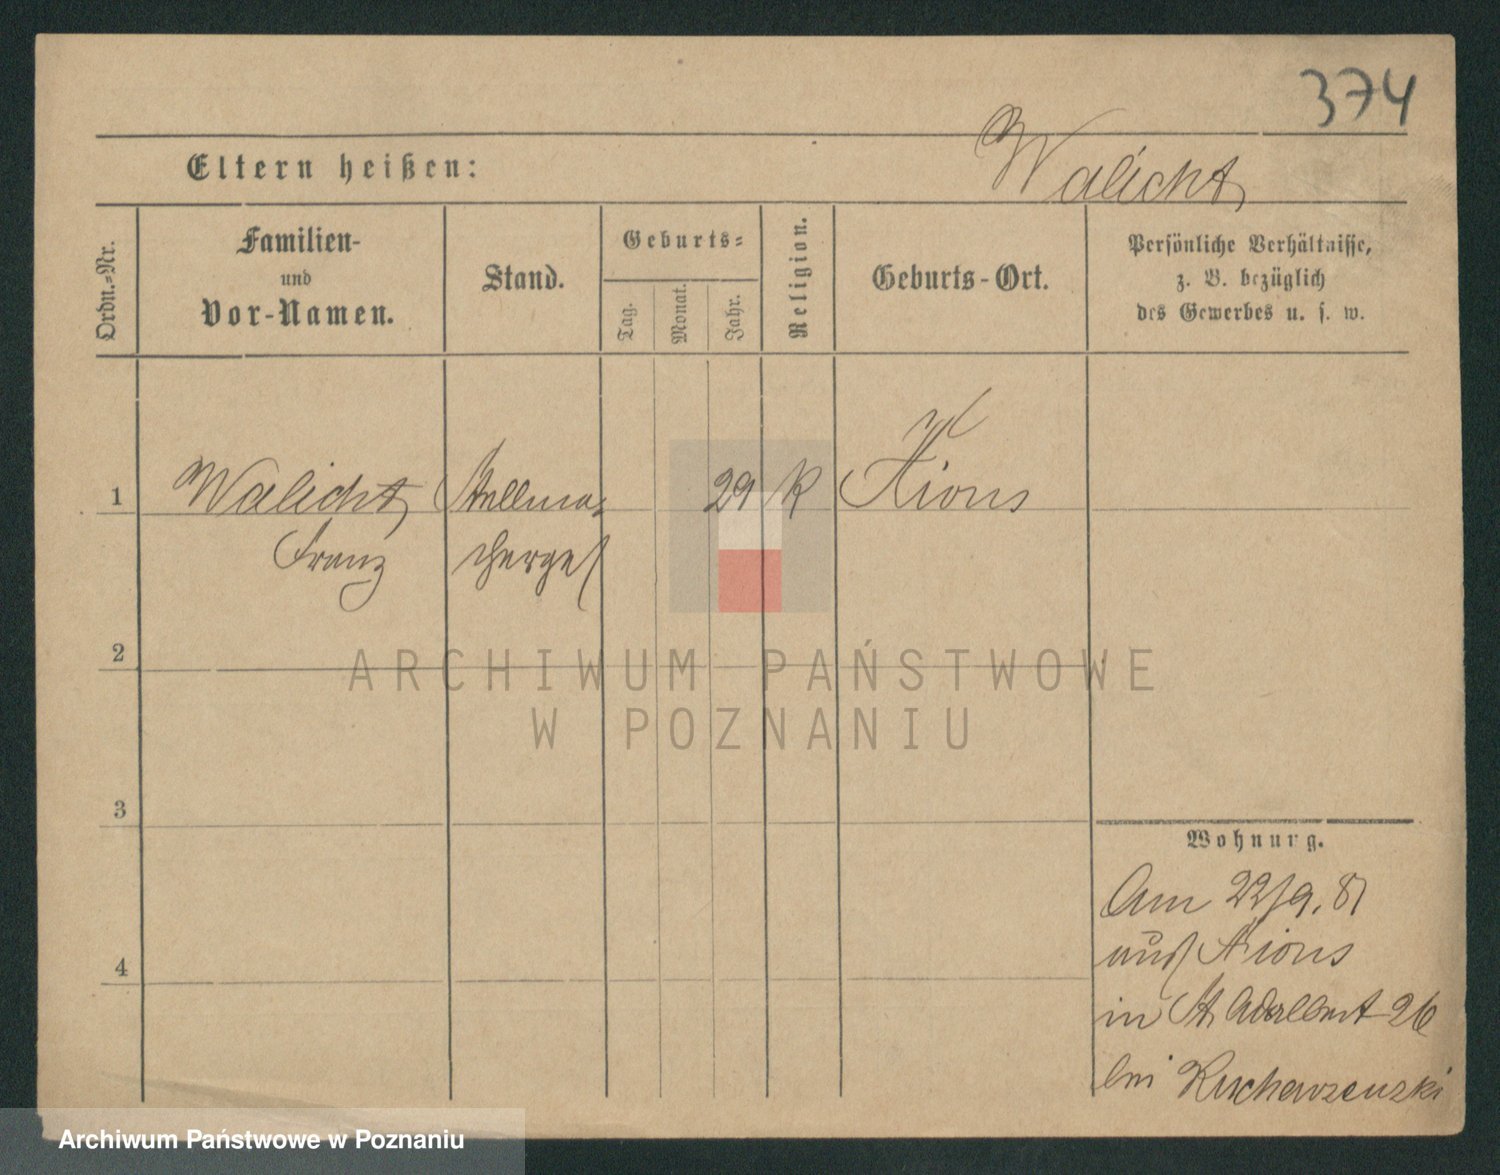 374
Eltern heißen:
Walicht
Ordn.-Nr.
Familien-
und
Vor-Namen.
Stand.
Geburts-
Tag.
Monat.
Jahr.
Religion.
Geburts-Ort.
Persönliche Verhältnisse,
z. B. bezüglich
des Gewerbes u. s. w.
1
Walicht
Stellma-
29
K
Xions
Franz
cherges
2
ARCHIWUM PAŃSTWOWE
W POZNANIU
3
Wohnung.
Am 22/9. 81
aus Xions
4
in St Adalbert 26
bei Kucharzenski
Archiwum Państwowe w Poznaniu